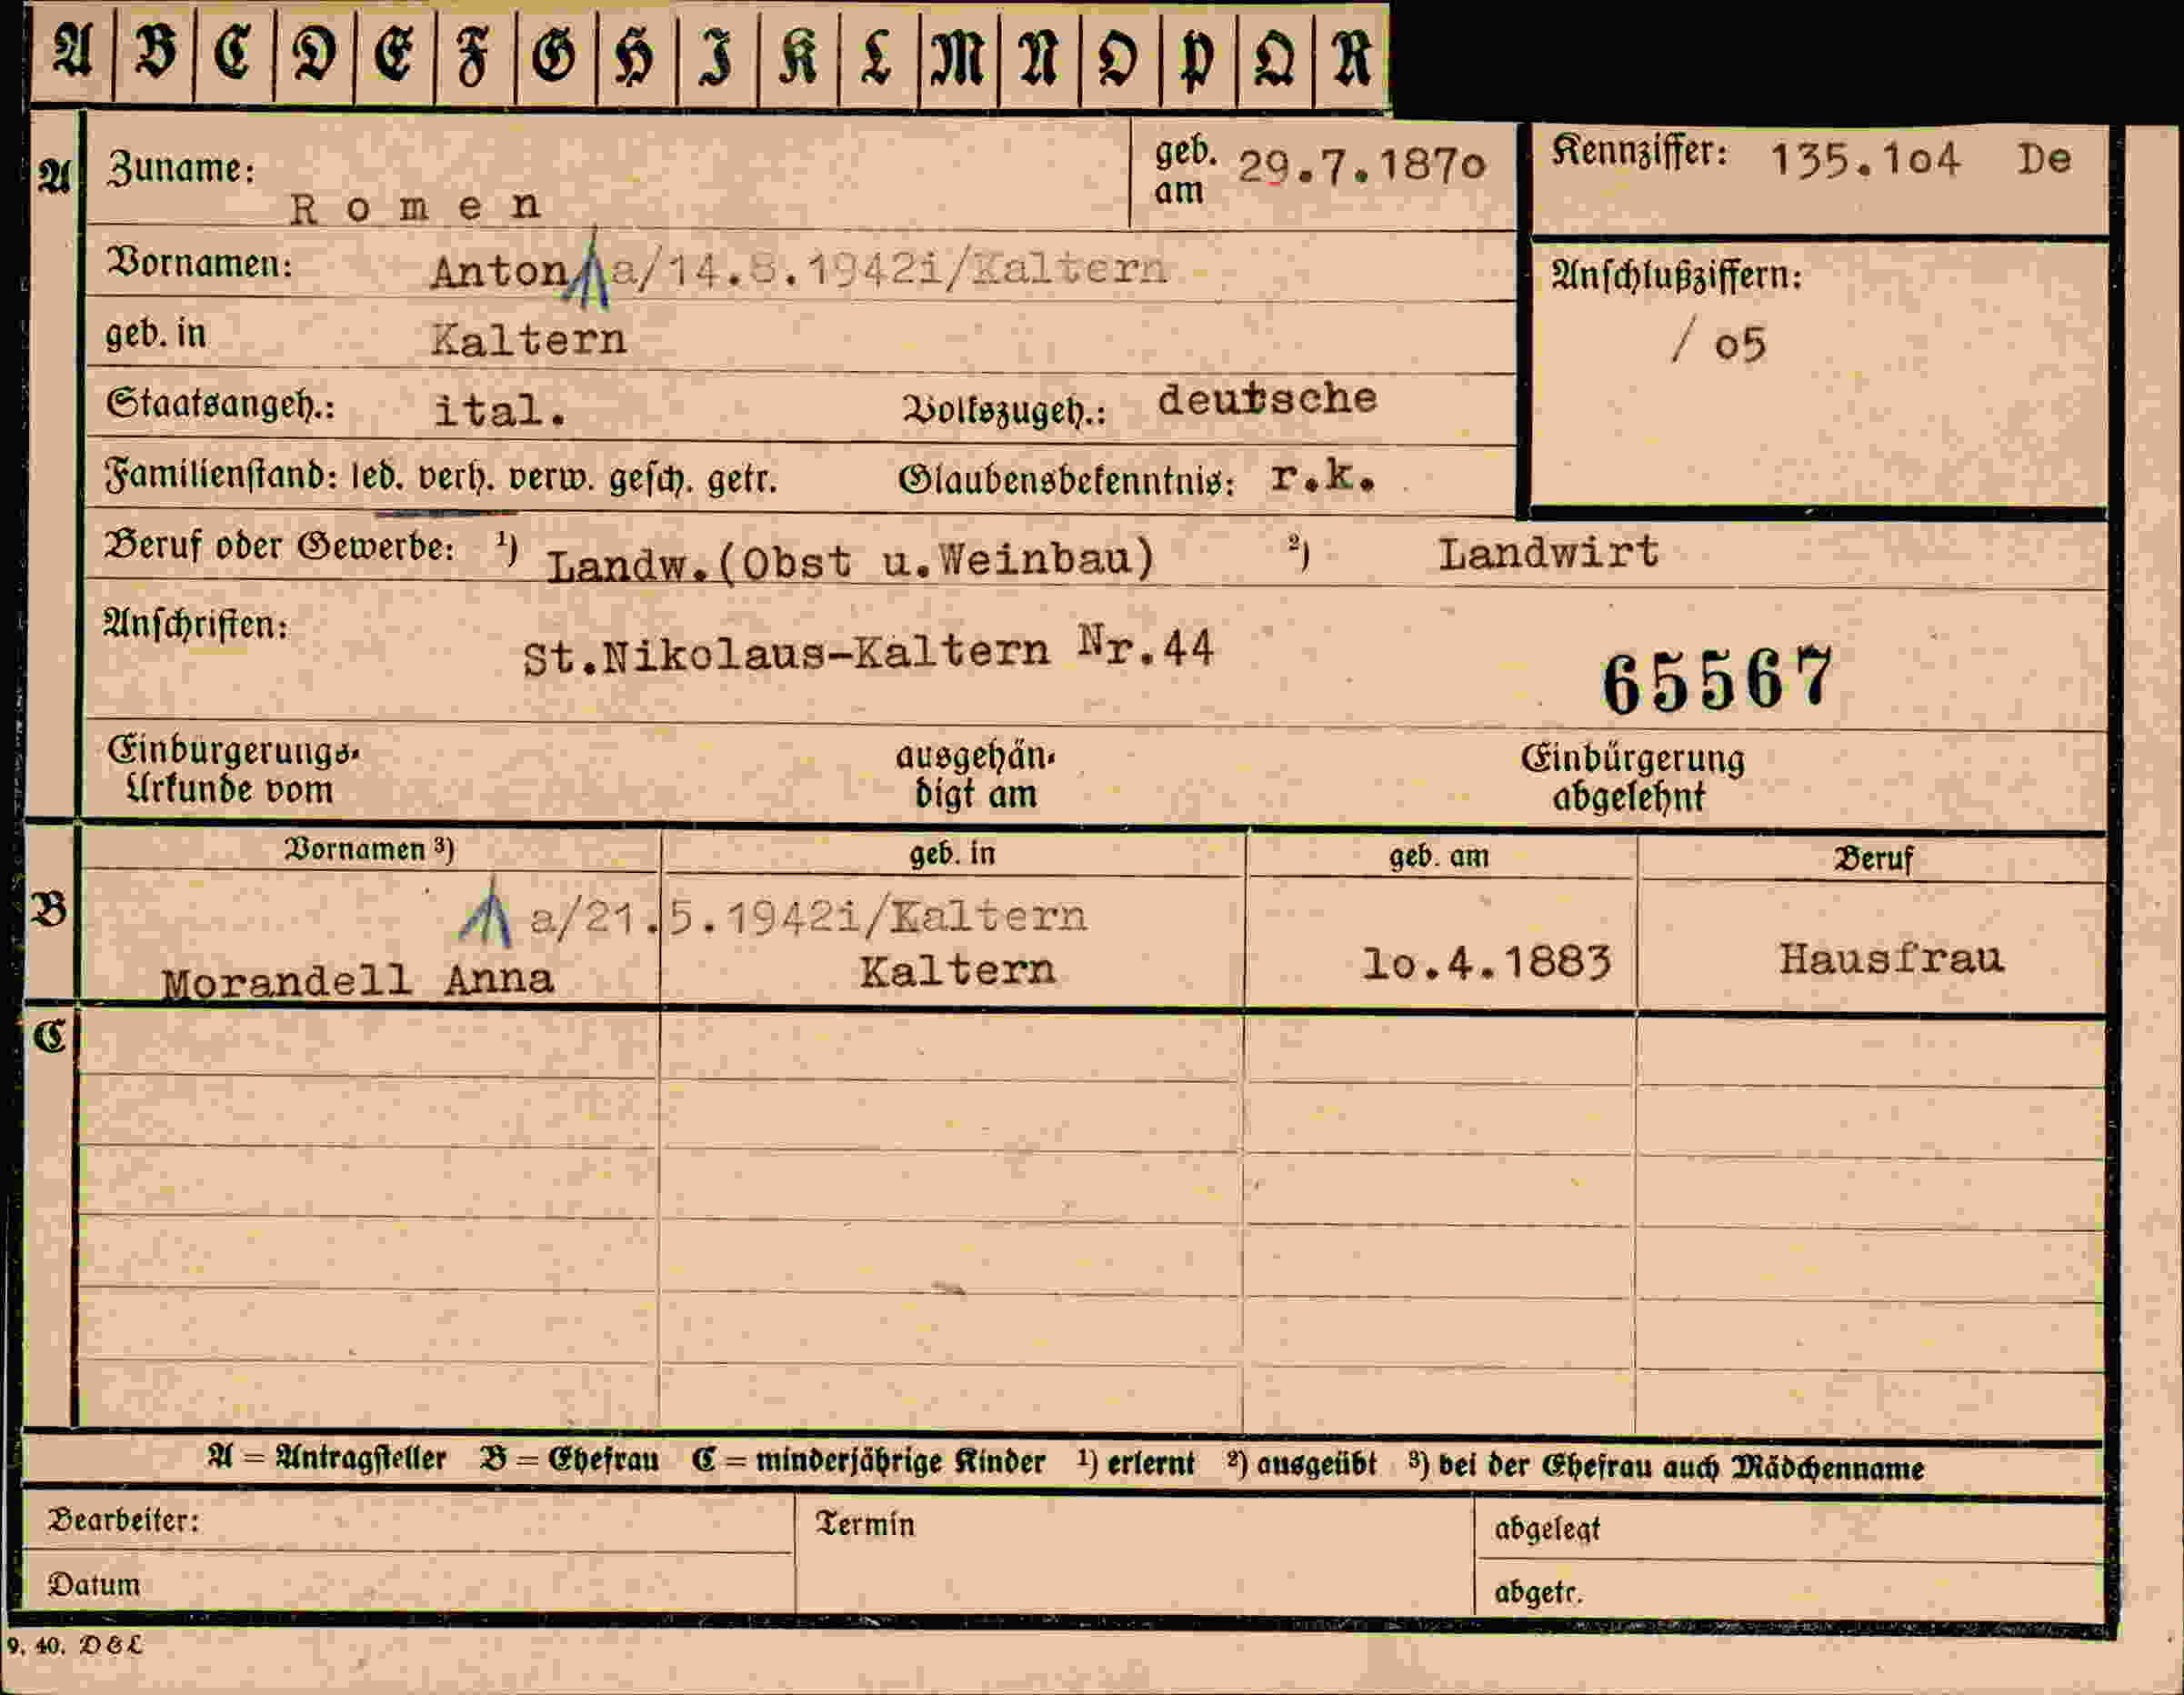 A B C D E F G H I K L M N O P Q R
A Zuname: Romen geb. am 29.7.1870 Kennziffer: 135.104 De
Vornamen: Anton a/14.8.1942i/Kaltern Anschlußziffern:
geb. in Kaltern / 05
Staatsangeh.: ital. Volkszugeh.: deutsche
Familienstand: led. verh. verw. gesch. getr. Glaubensbekenntnis: r.k.
Beruf oder Gewerbe: 1) Landw.(Obst u.Weinbau) 2) Landwirt
Anschriften: St.Nikolaus-Kaltern Nr.44 65567
Einbürgerungs- ausgehän- Einbürgerung
Urkunde vom digt am abgelehnt
Vornamen 3) geb. in geb. am Beruf
B a/21.5.1942i/Kaltern
Morandell Anna Kaltern 10.4.1883 Hausfrau
C
A = Antragsteller B = Ehefrau C = minderjährige Kinder 1) erlernt 2) ausgeübt 3) bei der Ehefrau auch Mädchenname
Bearbeiter: Termin abgelegt
Datum abgetr.
9. 40. D & L